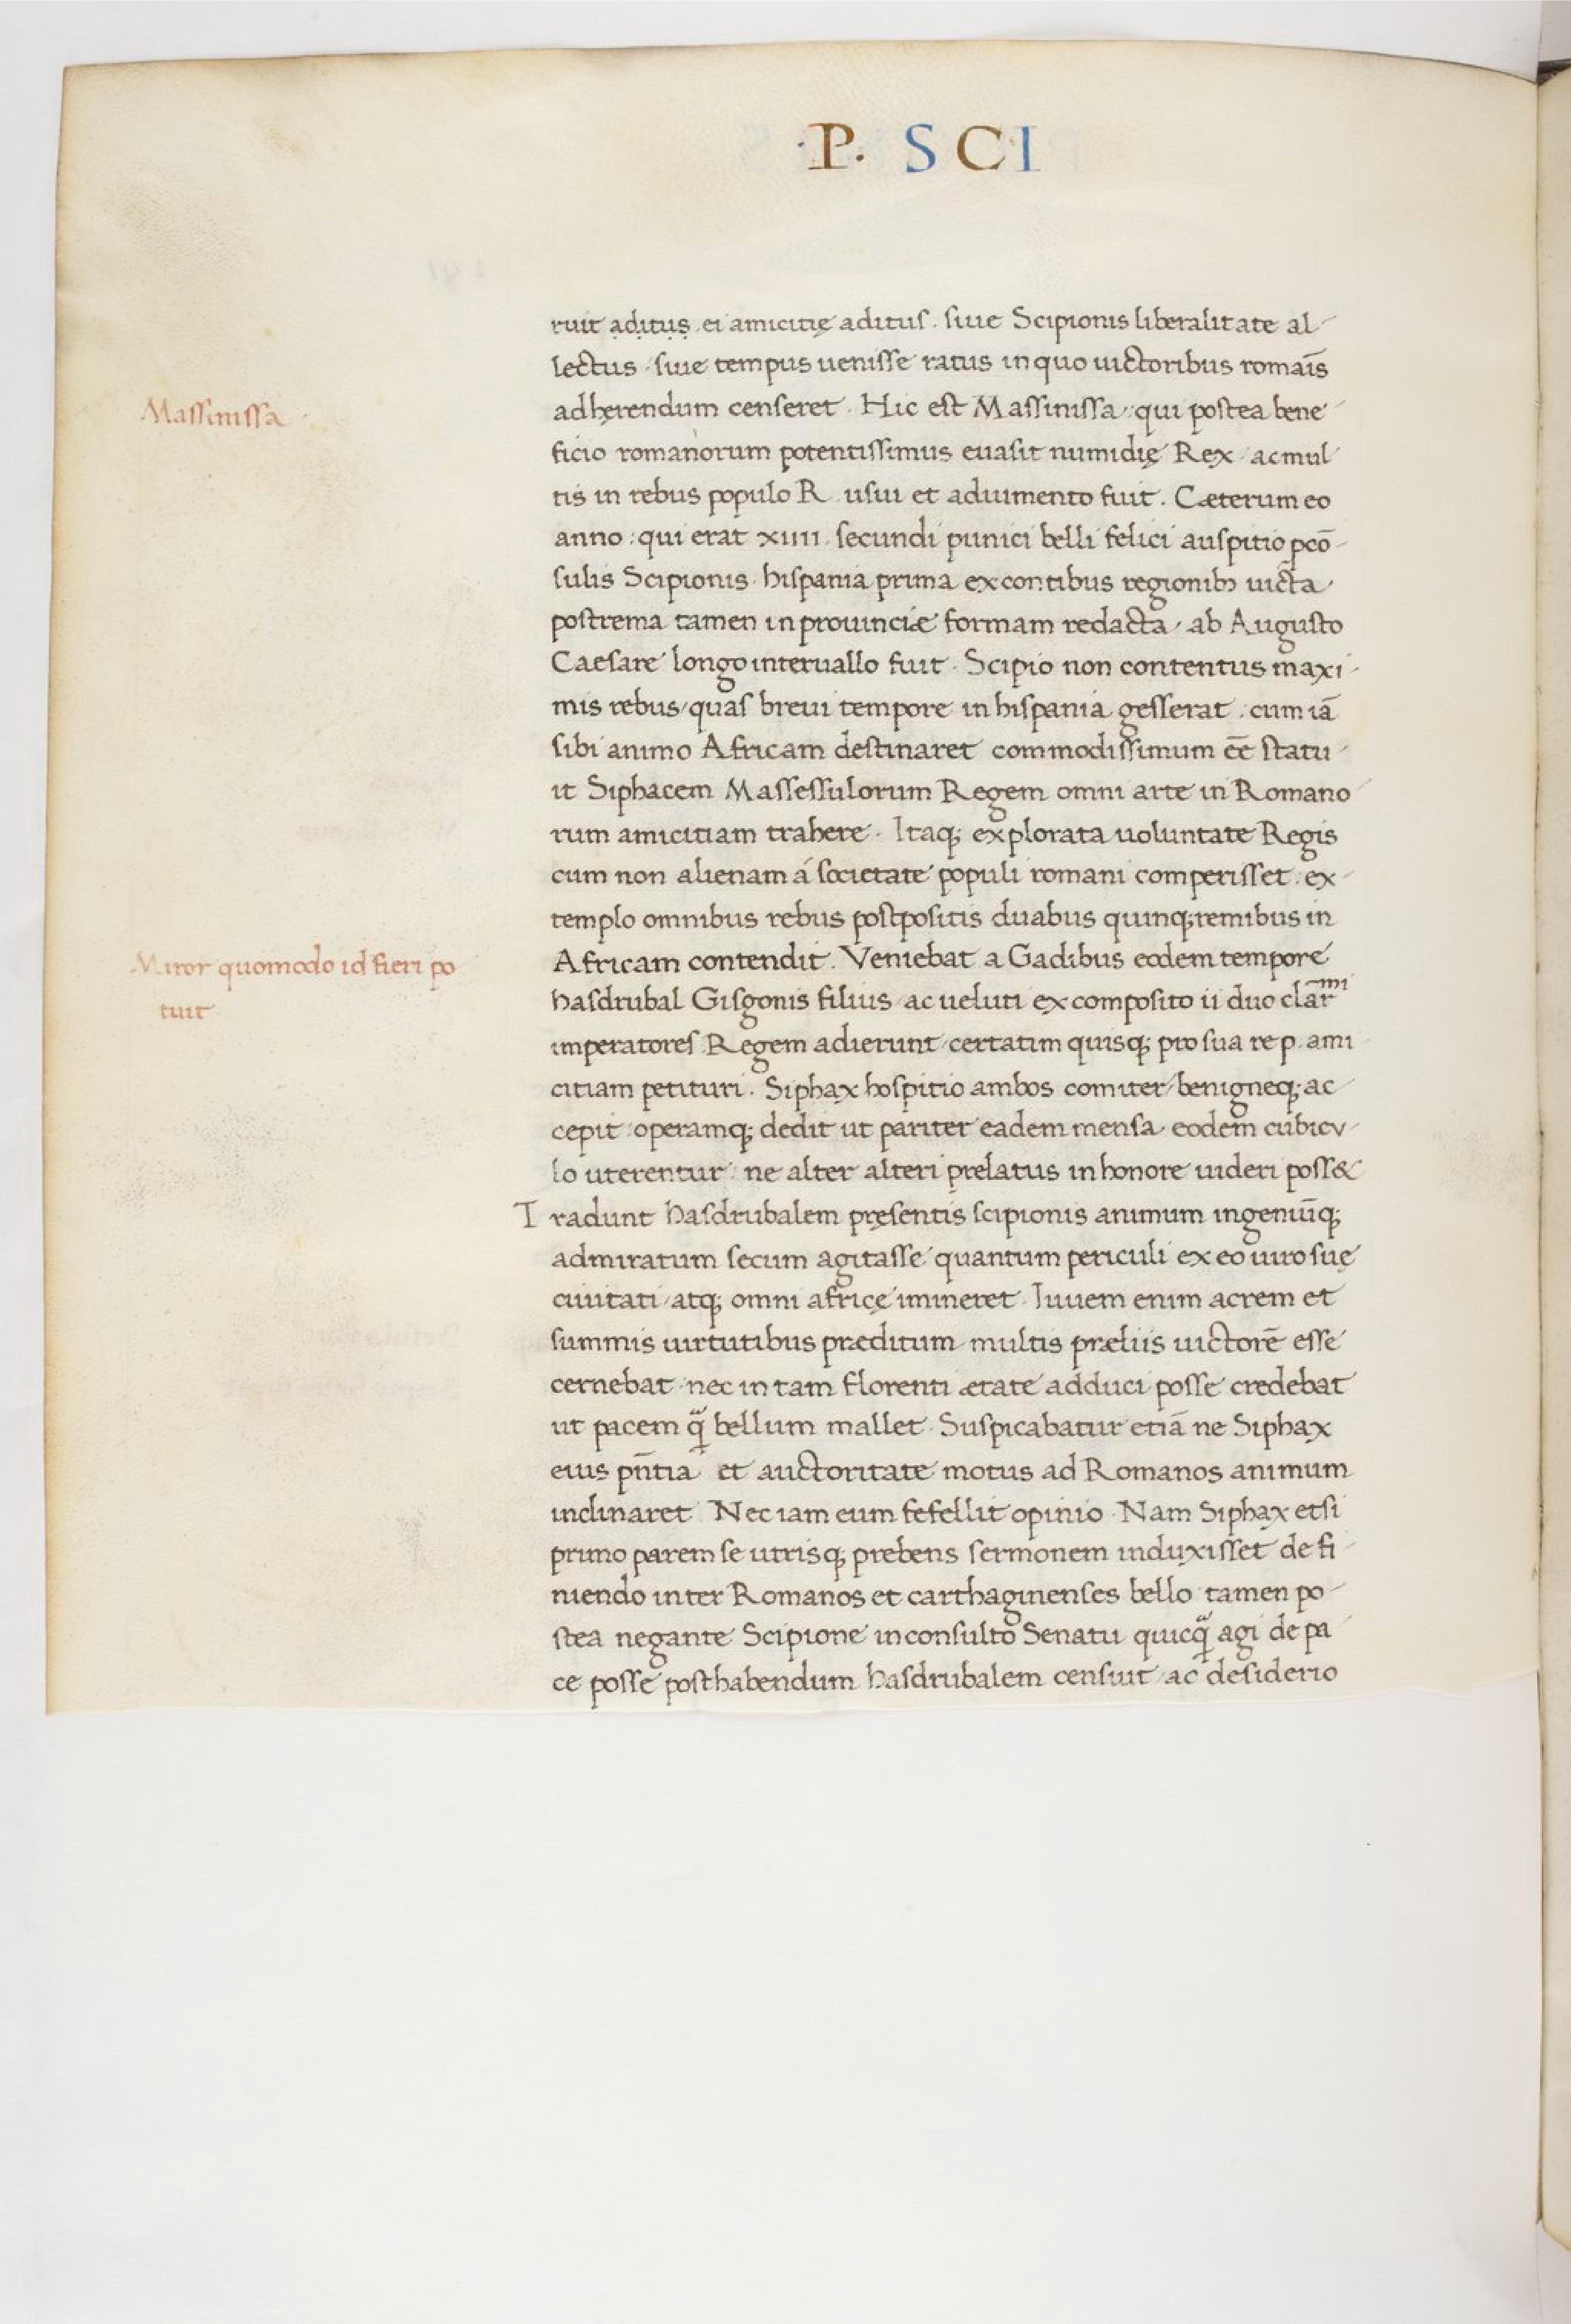 ·P· SCI
ruit aditus ei amicitię aditus. siue Scipionis liberalitate al-
lectus. siue tempus uenisse ratus in quo uictoribus romaīs
adhęrendum censeret. Hic est Massinissa: qui postea bene-
Massinissa
ficio romanorum potentissimus euasit numidię Rex. ac mul-
tis in rebus populo R. usui et adiumento fuit. Cæterum eo
anno: qui erat xiiii. secundi punici belli felici auspitio p̄cō-
sulis Scipionis. hispania prima ex contibus regionibꝫ uicta
postrema tamen in prouinciæ formam redacta, ab Augusto
Caesare longo interuallo fuit. Scipio non contentus maxi-
mis rebus, quas breui tempore in hispania gesserat. cum iā
sibi animo Africam destinaret commodissimum eē statu-
it Siphacem Massessulorum Regem omni arte in Romano
rum amicitiam trahere. Itaq; explorata uoluntate Regis
cum non alienam á societate populi romani comperisset. ex-
templo omnibus rebus postpositis duabus quinq;remibus in
Africam contendit. Veniebat a Gadibus eodem tempore
Miror quomodo id fieri po
tuit
hasdrubal Gisgonis filius, ac ueluti ex composito ii duo clār̄mi
imperatores Regem adierunt, certatim quisq; pro sua re p. ami
citiam petituri. Siphax hospitio ambos comiter, benigneq; ac-
cepit: operamq; dedit ut pariter eadem mensa, eodem cubicu-
lo uterentur: ne alter alteri prelatus in honore uideri poss&
Tradunt hasdrubalem pręsentis scipionis animum ingeniūq;
admiratum secum agitasse quantum periculi ex eo uiro suę
ciuitati, atq; omni africę imineret. Iuuem enim acrem et
summis uirtutibus præditum, multis præliis uictorē esse
cernebat. nec in tam florenti ætate adduci posse credebat
ut pacem q̄ᵃ bellum mallet. Suspicabatur etiā ne Siphax
eius pn̄tia et auctoritate motus ad Romanos animum
inclinaret. Nec iam eum fefellit opinio. Nam Siphax etsi
primo parem se utrisq; prebens sermonem induxisset de fi-
niendo inter Romanos et carthaginenses bello. tamen po-
stea negante Scipione inconsulto Senatu quicq̄ᵃ agi de pa-
ce posse posthabendum hasdrubalem censuit, ac desiderio